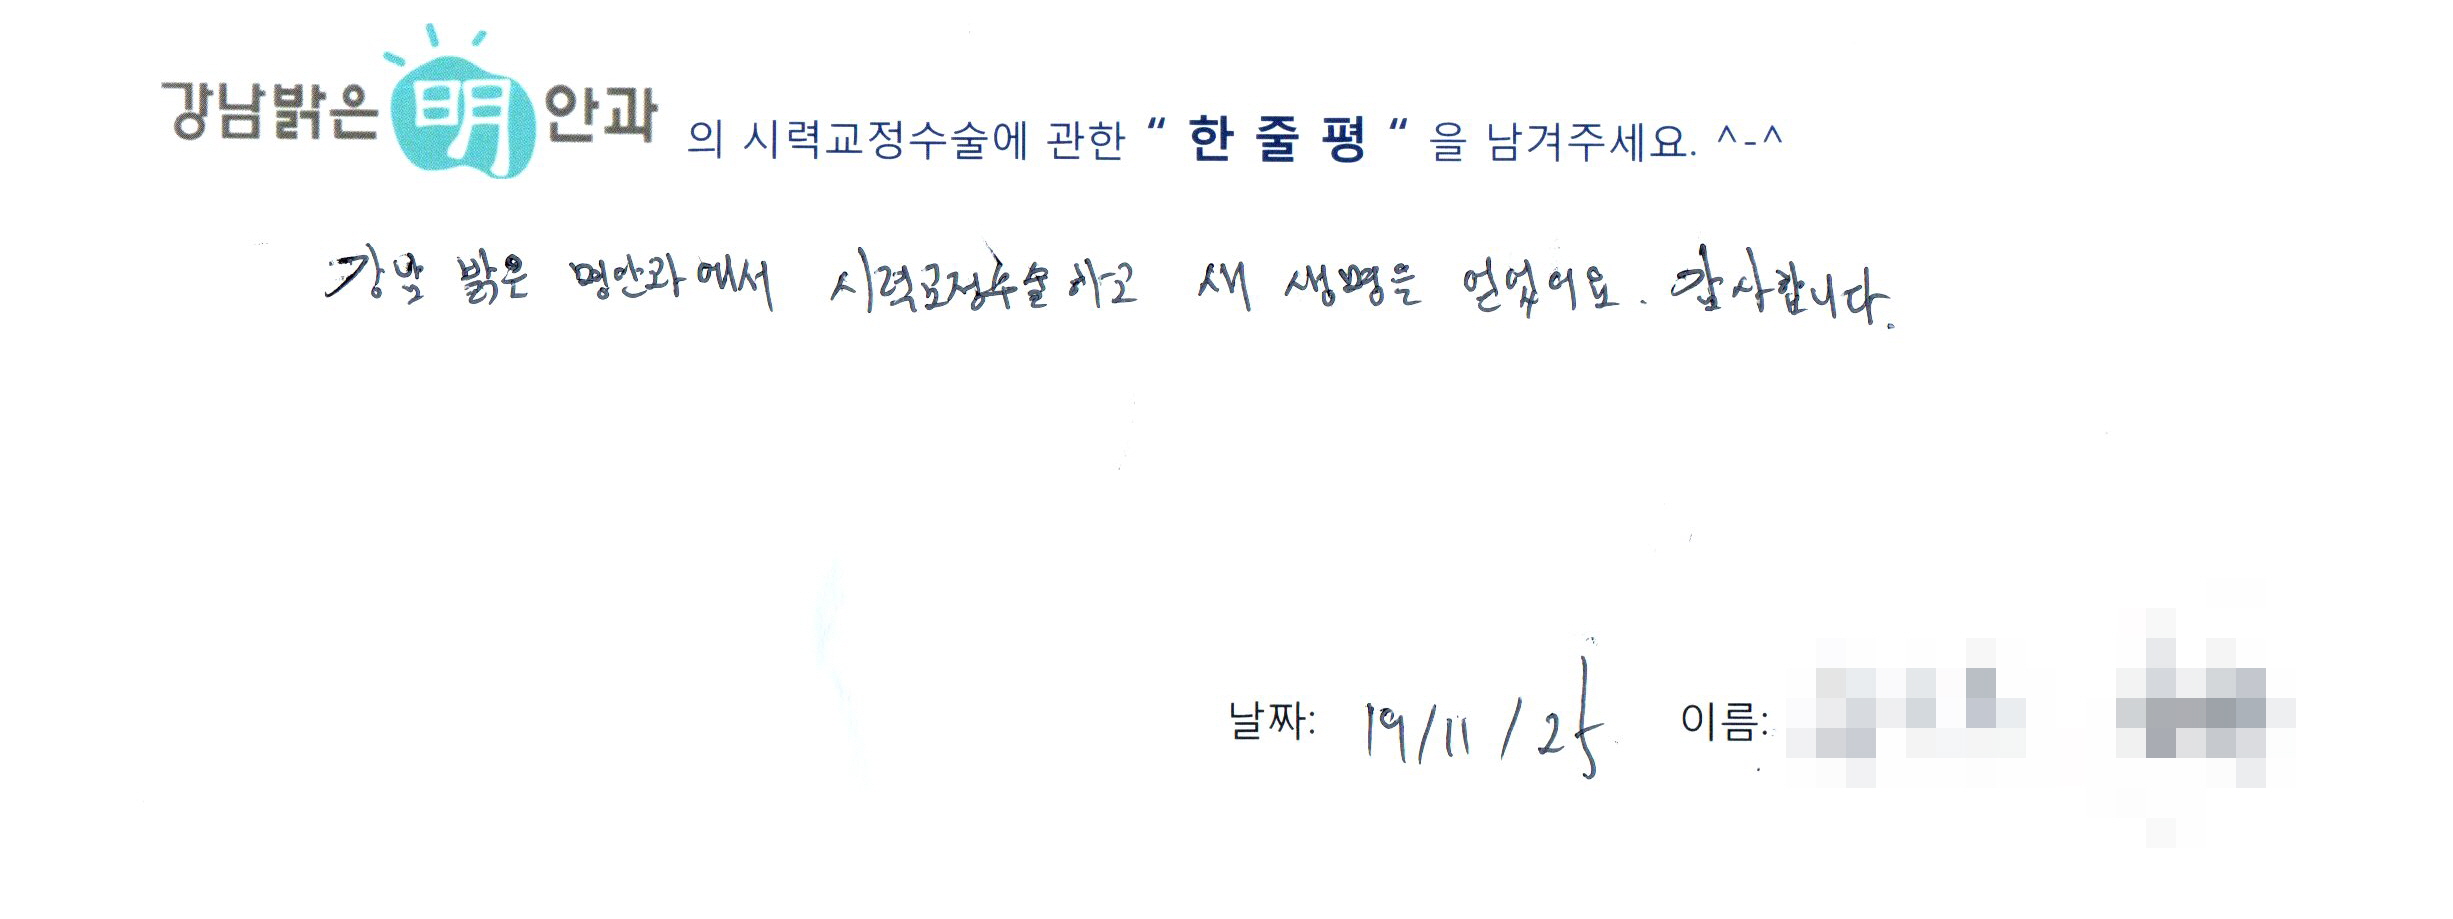 강남밝은明안과 의 시력교정수술에 관한 “ 한 줄 평 “ 을 남겨주세요. ^-^
강남 밝은 명안과에서 시력교정수술하고 새 생명을 얻었어요. 감사합니다.
날짜: 19/11/25 이름: